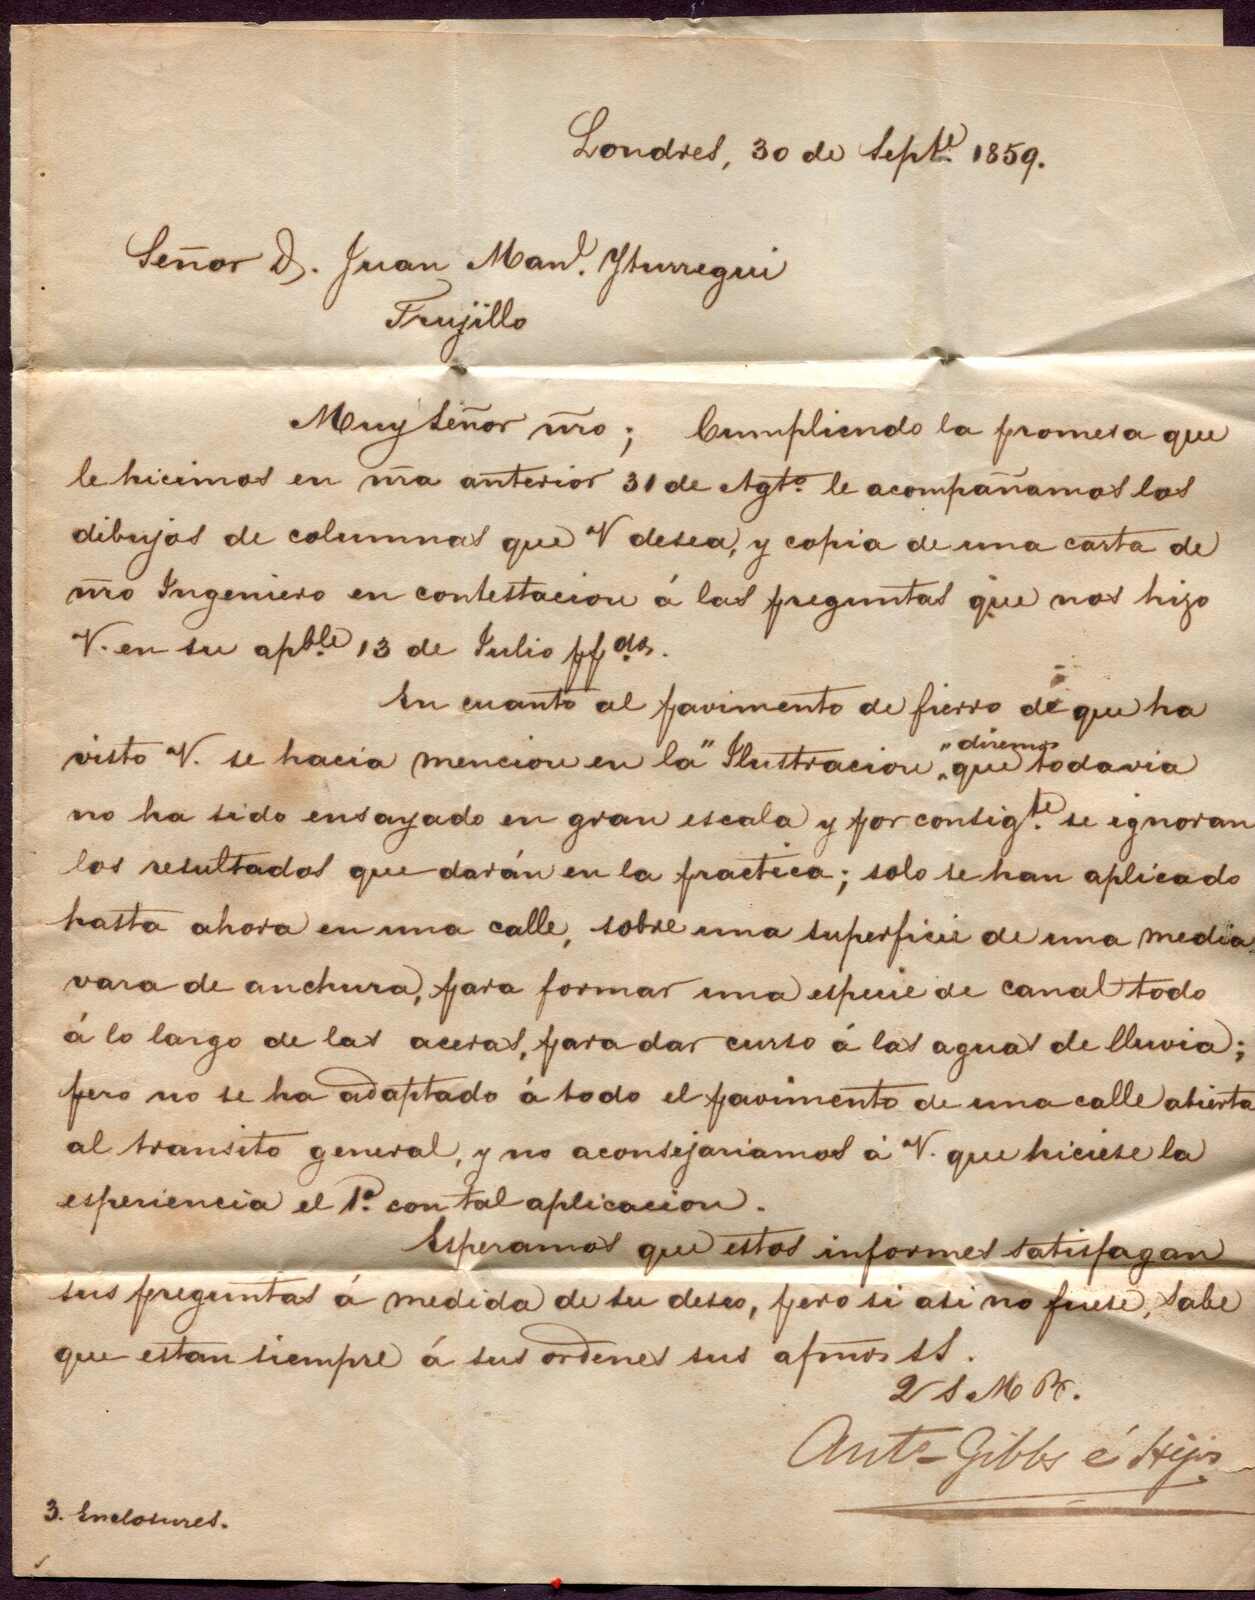 Londres, 30 de Septe. 1859.
Señor D. Juan Manl. Yturregui
Trujillo
Muy Señor nro; Cumpliendo la promesa que
le hicimos en nra anterior 31 de Agto. le acompañamos los
dibujos de columnas que V desea, y copia de una carta de
nro Ingeniero en contestacion á las preguntas que nos hizo
V. en su apble. 13 de Julio ppdo.
En cuanto al pavimento de fierro de que ha
visto V. se hacia mencion en la "Ilustracion", diremos que todavia
no ha sido ensayado en gran escala y por consigte. se ignoran
los resultados que darán en la practica; solo se han aplicado
hasta ahora en una calle, sobre una superficie de una media
vara de anchura, para formar una especie de canal todo
á lo largo de las aceras, para dar curso á las aguas de lluvia;
pero no se ha adaptado á todo el pavimento de una calle abierta
al transito general, y no aconsejariamos á V. que hiciese la
esperiencia el 1o. con tal aplicacion.
Esperamos que estos informes satisfagan
sus preguntas á medida de su deseo, pero si asi no fuese, sabe
que estan siempre á sus ordenes sus afmos SS.
Q S M B.
Anto Gibbs é Hijos
3. Enclosures.